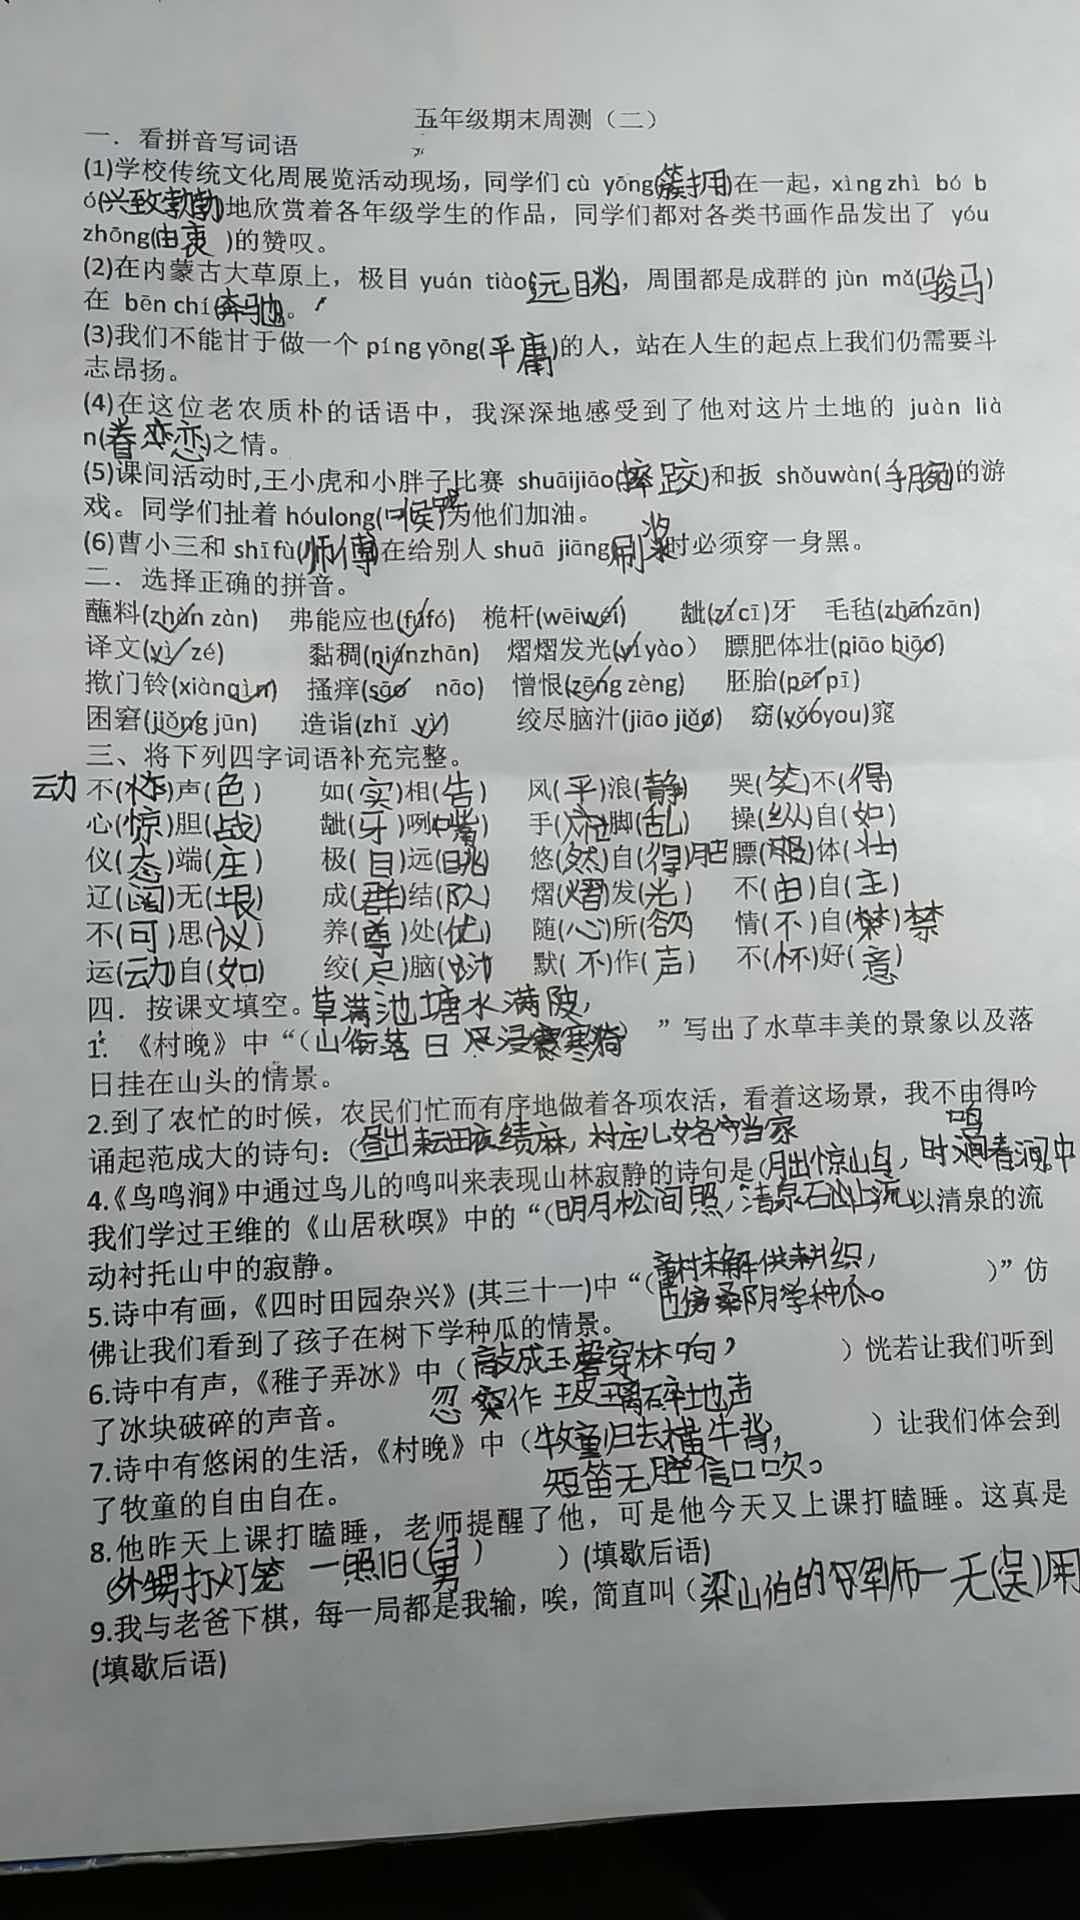 五年级期末周测（二）
一．看拼音写词语
(1)学校传统文化周展览活动现场，同学们 cù yōng(簇拥)在一起，xìng zhì bó b
ó(兴致勃勃)地欣赏着各年级学生的作品，同学们都对各类书画作品发出了 yóu
zhōng(由衷 )的赞叹。
(2)在内蒙古大草原上，极目 yuán tiào(远眺，周围都是成群的 jùn mǎ(骏马)
在 bēn chí(奔驰)。
(3)我们不能甘于做一个 píng yōng(平庸)的人，站在人生的起点上我们仍需要斗
志昂扬。
(4)在这位老农质朴的话语中，我深深地感受到了他对这片土地的 juàn lià
n(眷恋)之情。
(5)课间活动时,王小虎和小胖子比赛 shuāijiāo(摔跤)和扳 shǒuwàn(手腕)的游
戏。同学们扯着 hóulong(喉咙)为他们加油。
(6)曹小三和 shīfù(师傅)在给别人 shuā jiāng(刷浆)时必须穿一身黑。
二．选择正确的拼音。
蘸料(zhàn zàn) 弗能应也(fúfó) 桅杆(wēiwéi) 龇(zī cī)牙 毛毡(zhānzān)
译文(yì zé) 黏稠(niánzhān) 熠熠发光(yìyào） 膘肥体壮(piāo biāo)
揿门铃(xiànqìn) 搔痒(sāo nāo) 憎恨(zēng zèng) 胚胎(pēi pī)
困窘(jiǒng jūn) 造诣(zhǐ yì) 绞尽脑汁(jiāo jiǎo) 窈(yǎoyou)窕
三、将下列四字词语补充完整。
动 不( )声(色 ) 如(实)相(告 ) 风(平)浪(静) 哭(笑)不(得)
心(惊)胆(战) 龇(牙 )咧(嘴) 手(忙)脚(乱) 操(纵)自(如)
仪(态)端(庄) 极(目)远(眺) 悠(然)自(得) 膘(肥)体(壮)
辽(阔)无(垠) 成(群)结(队) 熠(熠)发(光) 不(由)自(主)
不(可)思(议) 养(尊)处(优) 随(心)所(欲 情(不)自( )禁
运(动)自(如) 绞(尽)脑(汁) 默( 不)作(声) 不(怀)好(意)
四．按课文填空。草满池塘水满陂，
1. 《村晚》中“(山衔落日浸寒漪) ”写出了水草丰美的景象以及落
日挂在山头的情景。
2.到了农忙的时候，农民们忙而有序地做着各项农活，看着这场景，我不由得吟
诵起范成大的诗句：(昼出耘田夜绩麻，村庄儿女各当家
4.《鸟鸣涧》中通过鸟儿的鸣叫来表现山林寂静的诗句是(月出惊山鸟，时鸣春涧中
我们学过王维的《山居秋暝》中的“(明月松间照，清泉石上流 以清泉的流
动衬托山中的寂静。
5.诗中有画，《四时田园杂兴》(其三十一)中“(童村未解供耕织， )”仿
也傍桑阴学种瓜。
佛让我们看到了孩子在树下学种瓜的情景。
6.诗中有声，《稚子弄冰》中（敲成玉磬穿林响， ）恍若让我们听到
忽作玻璃碎地声
了冰块破碎的声音。
7.诗中有悠闲的生活，《村晚》中（牧童归去横牛背， ）让我们体会到
短笛无腔信口吹。
了牧童的自由自在。
8.他昨天上课打瞌睡，老师提醒了他，可是他今天又上课打瞌睡。这真是
(外甥打灯笼 一照旧(舅) ) (填歇后语)
9.我与老爸下棋，每一局都是我输，唉，简直叫（梁山伯的军师一无(吴)用
(填歇后语)